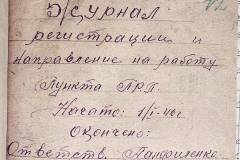 72
Журнал
регистрации и
направление на работу
Пункта ПРП.
Насато: 1/I-46г
Окончено:
Ответств. Панфиленко.